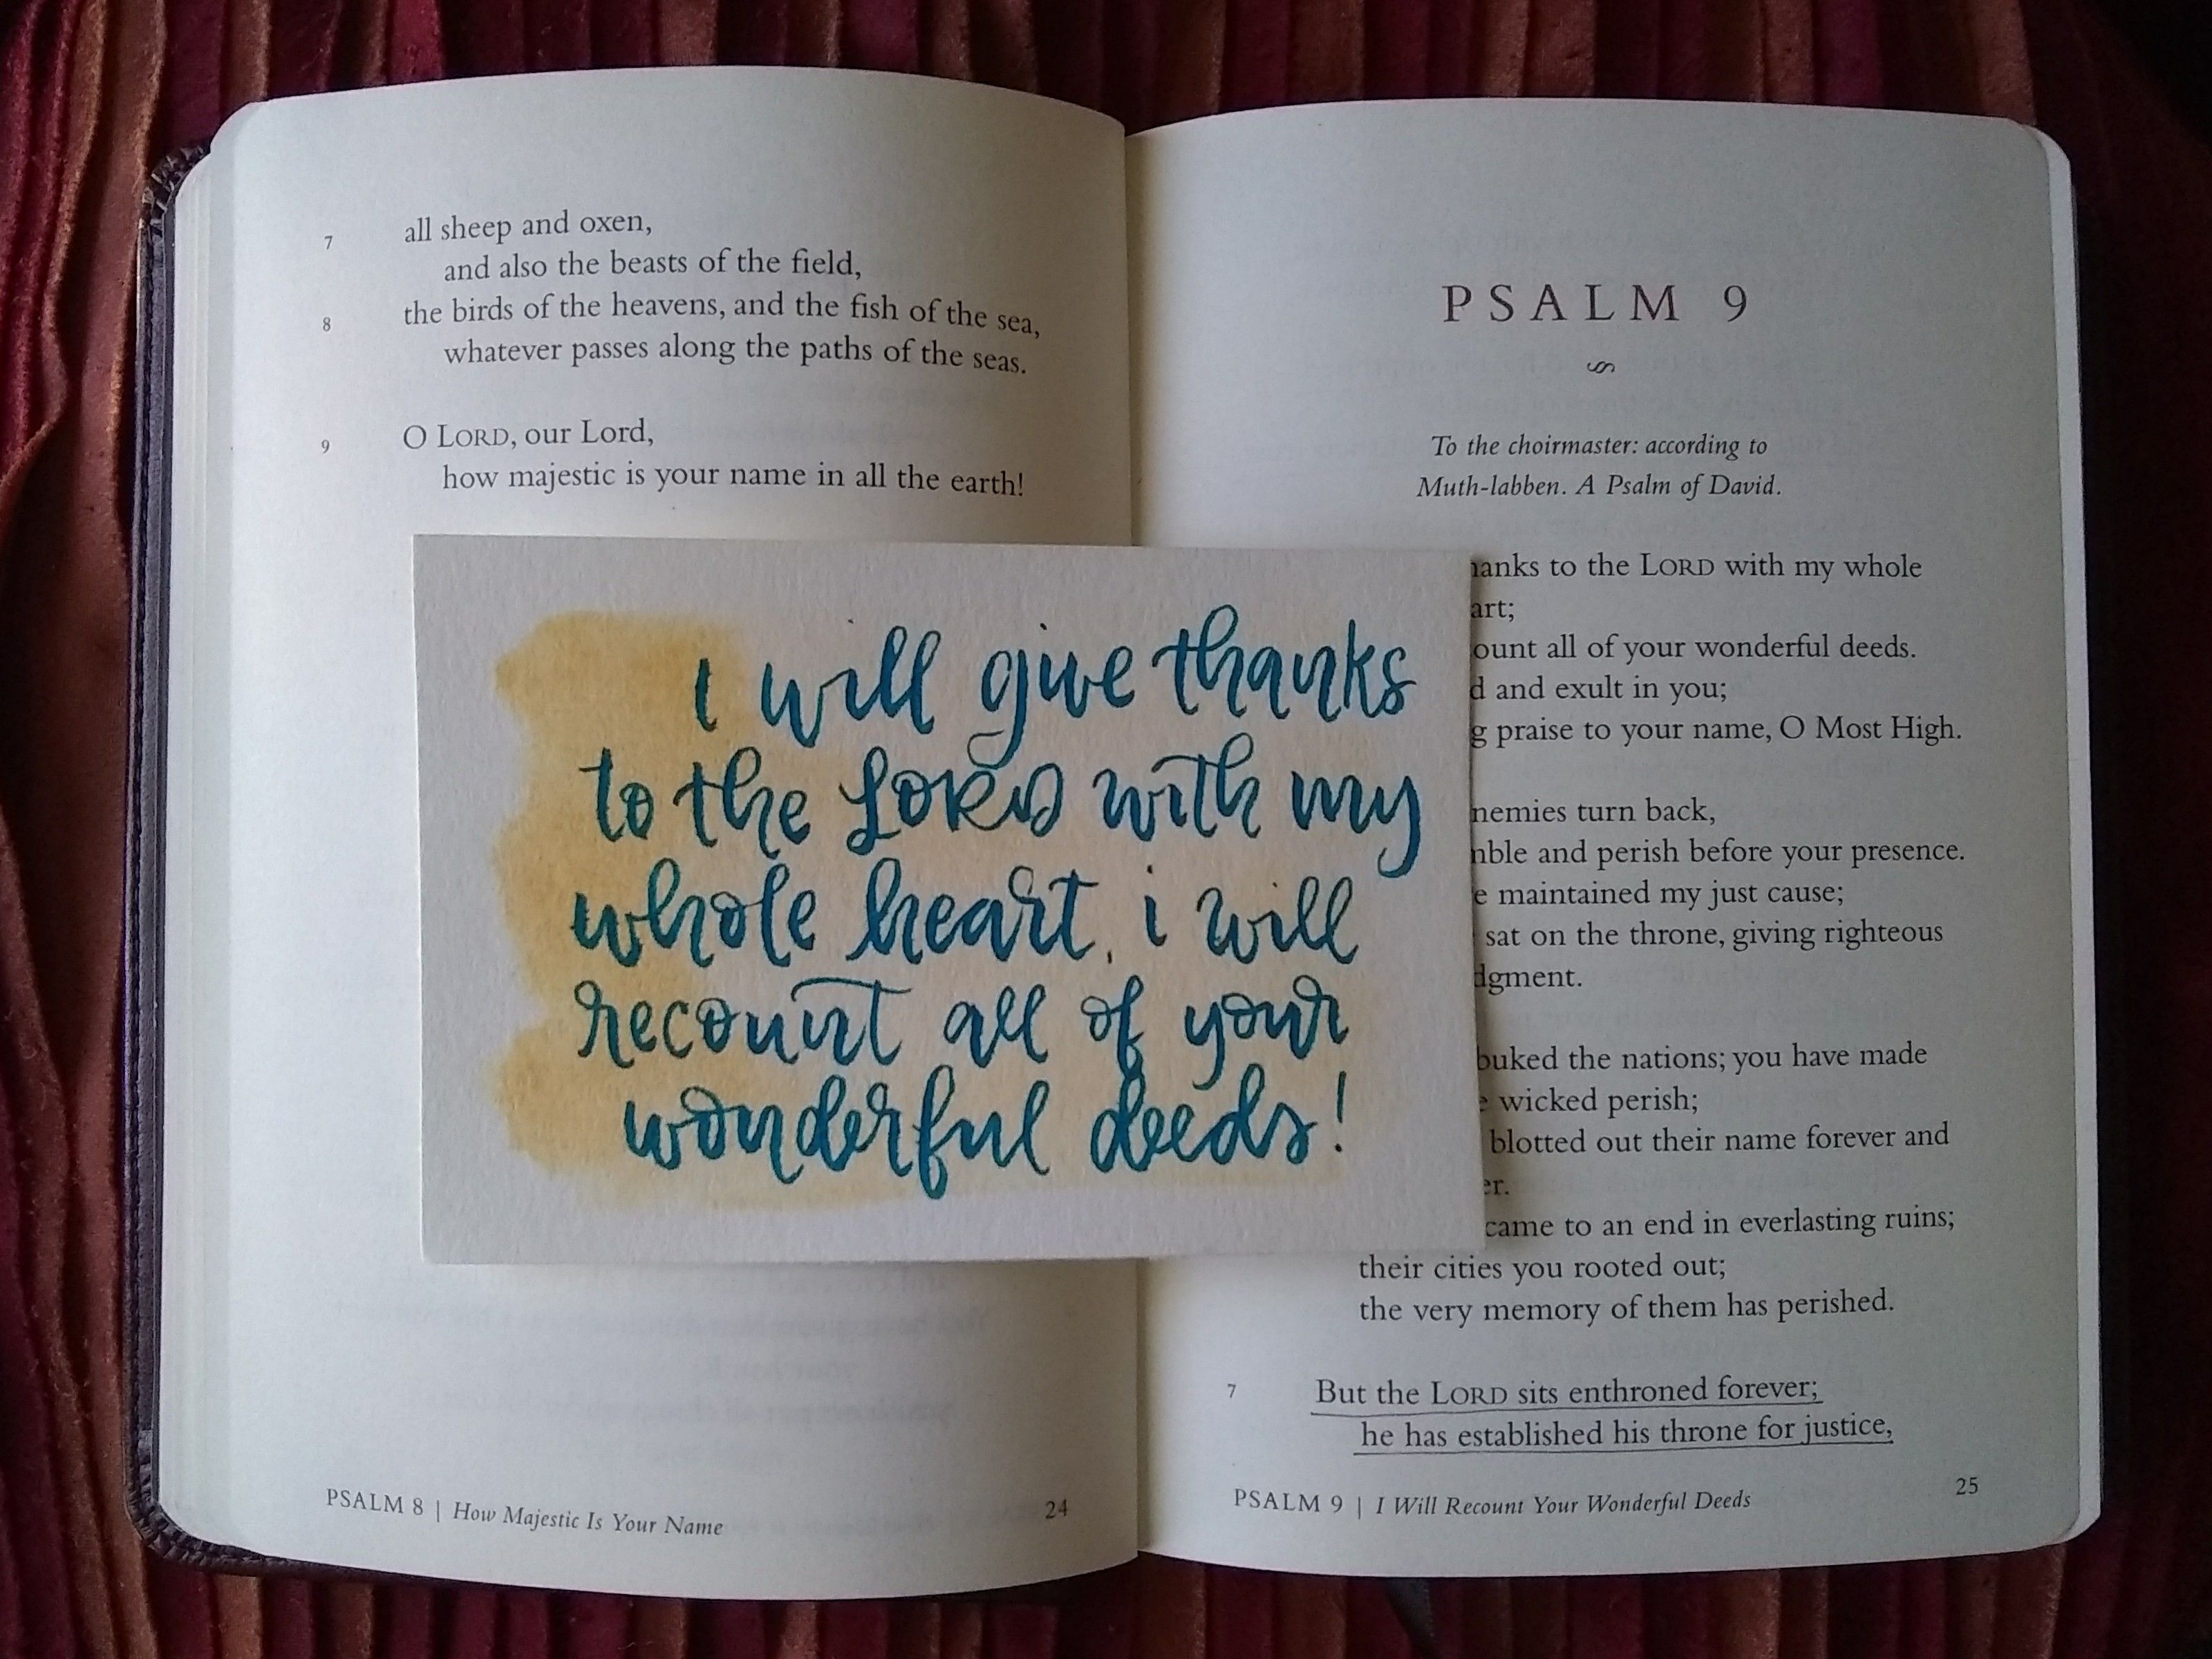 7 all sheep and oxen,
and also the beasts of the field,
8 the birds of the heavens, and the fish of the sea,
whatever passes along the paths of the seas.
9 O LORD, our Lord,
how majestic is your name in all the earth!
PSALM 8 | How Majestic Is Your Name 24
i will give thanks
to the LORD with my
whole heart, i will
recount all of your
wonderful deeds!
PSALM 9
To the choirmaster: according to
Muth-labben. A Psalm of David.
to the LORD with my whole
all of your wonderful deeds.
and exult in you;
praise to your name, O Most High.
turn back,
and perish before your presence.
maintained my just cause;
sat on the throne, giving righteous
the nations; you have made
wicked perish;
blotted out their name forever and
came to an end in everlasting ruins;
their cities you rooted out;
the very memory of them has perished.
7 But the LORD sits enthroned forever;
he has established his throne for justice,
PSALM 9 | I Will Recount Your Wonderful Deeds 25